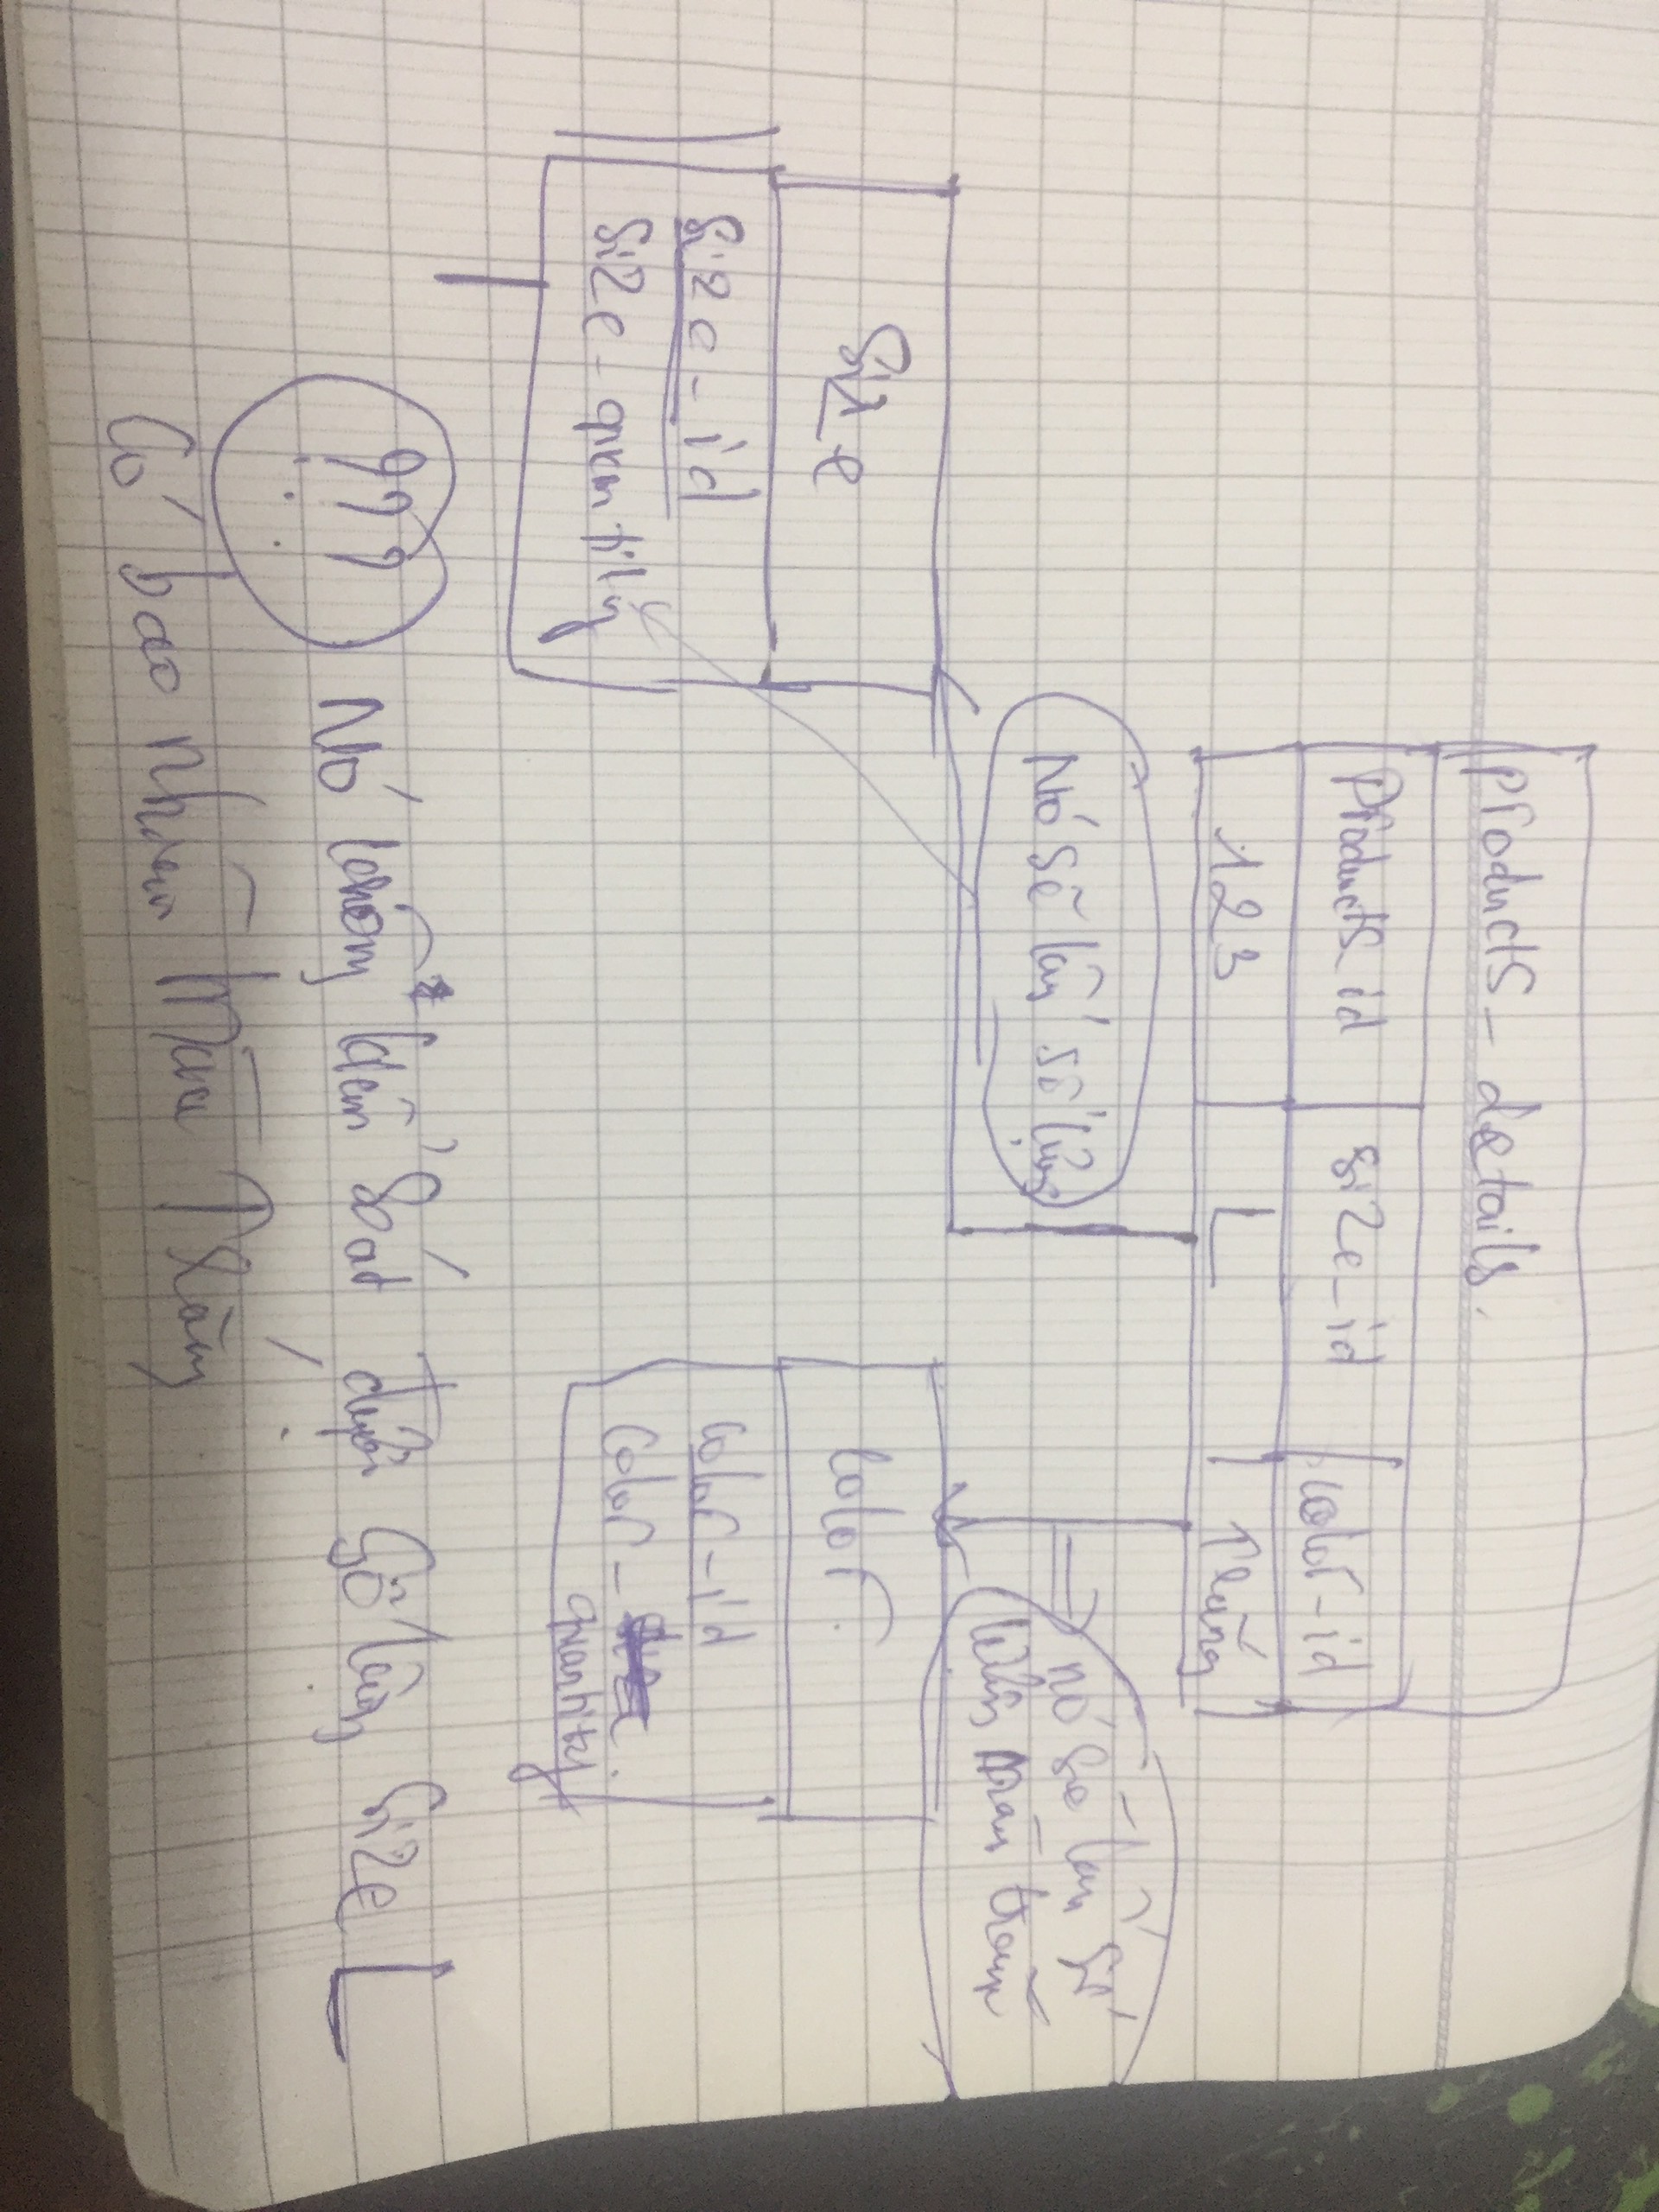 Products - details.
Products_id size_id color-id
123 L Trắng
Nó sẽ lấy số lượng
=> nó sẽ lấy số
lượng màu trắng
Size
Size-id
Size-quantity
Color
Color-id
Color-
quantity.
??? Nó không kiểm soát được số lượng size L
Có bao nhiêu màu Trắng